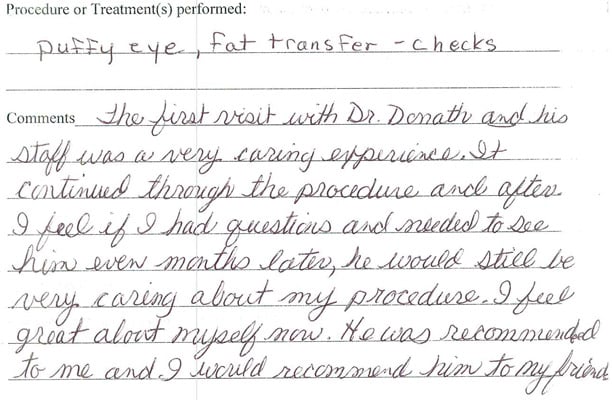 Procedure or Treatment(s) performed:
puffy eye, fat transfer - checks
Comments The first visit with Dr. Donath and his
staff was a very caring experience. It
continued through the procedure and after.
I feel if I had questions and needed to see
him even months later, he would still be
very caring about my procedure. I feel
great about myself now. He was recommended
to me and I would recommend him to my friend